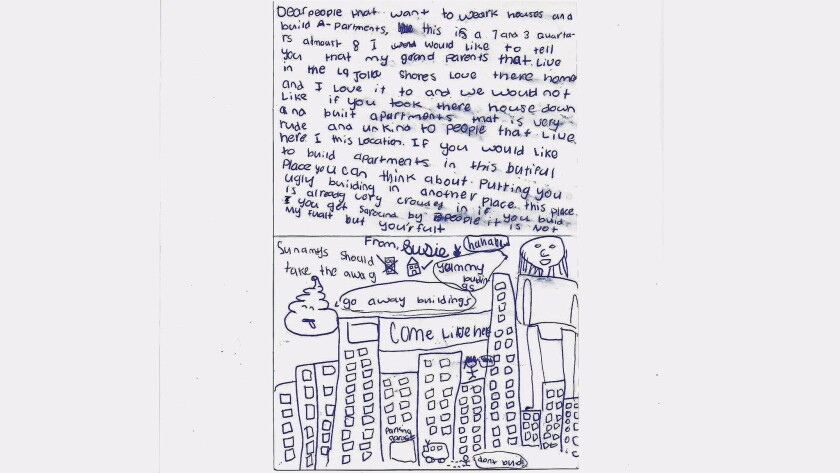 Dear people that want to weark houses and
build A-partments, this is a 7 and 3 quarta-
rs almost 8 I would like to tell
you that my grand parents that live
in the La Jolla Shores Love there home
and I love it to and we would not
Like if you took there house down
and built apartments that is very
rude and unkind to people that Live
here I this location. If you would like
to build apartments in this butiful
Place you can think about Putting you
ugly building in another Place. this place
is already very crouded in if you build
I you get saround by people it is NOT
My fualt but your fult
From, Susie
hahaha
Sunamys should
take the away
yummy
buildin
gs
go away buildings
Come Live here
Parking
garage
dont build